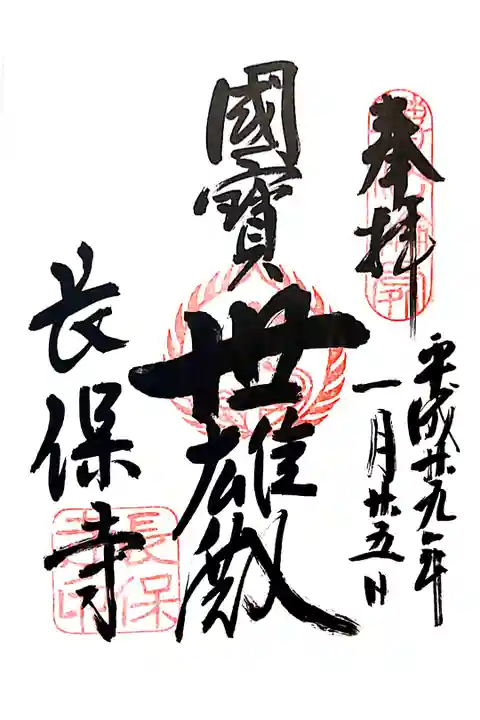 奉拝
平成廿九年
一月廿五日
國寳
世雄殿
長保寺
長保
寺印